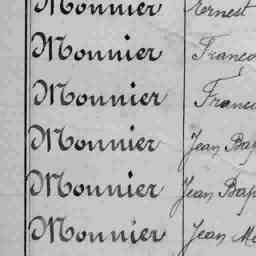 Monnier Ernest
Monnier Franço
Monnier Franço
Monnier Jean Bap
Monnier Jean Bap
Monnier Jean Ma